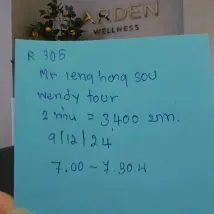 ARDEN
WELLNESS
R 305
Mr. leng hong sou
wendy tour
2 ท่าน = 3,400 บาท.
9/12/24
7.00 - 7.30 น